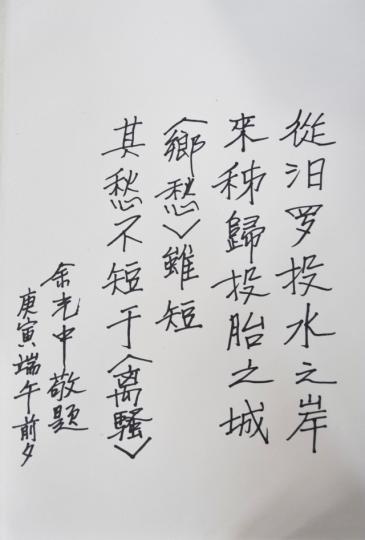 從汨罗投水之岸
來秭歸投胎之城
〈鄉愁〉雖短
其愁不短于〈离騷〉
余光中敬題
庚寅端午前夕